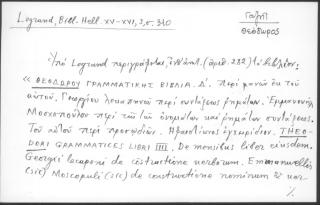 Legrand, Bibl. Hell. XV-XVI, 3, σ. 310
Γαζῆς
Θεόδωρος
Ὑπὸ Legrand περιγράφεται, (ἀριθ. 282) τὸ βιβλίον:
« ΘΕΟΔΩΡΟΥ ΓΡΑΜΜΑΤΙΚΗΣ ΒΙΒΛΙΑ Δ'. Περὶ μηνῶν ἐκ τοῦ
αὐτοῦ. Γεωργίου λεκαπηνοῦ περὶ συντάξεως ῥημάτων. Ἐμμανουὴλ
Μοσχοπούλου περὶ τῶν ὀνομάτων καὶ ῥημάτων συντάξεως.
Τοῦ αὐτοῦ περὶ προσῳδιῶν. Ἡφαιστίωνος ἐγχειρίδιον. THEO-
DORI GRAMMATICES LIBRI IIII. De mensibus liber eiusdem.
Georgii lecapeni de cōstructione verborum. Emmanuellis
(sic) Moscopuli (sic) de constructione nominum & ver
./.